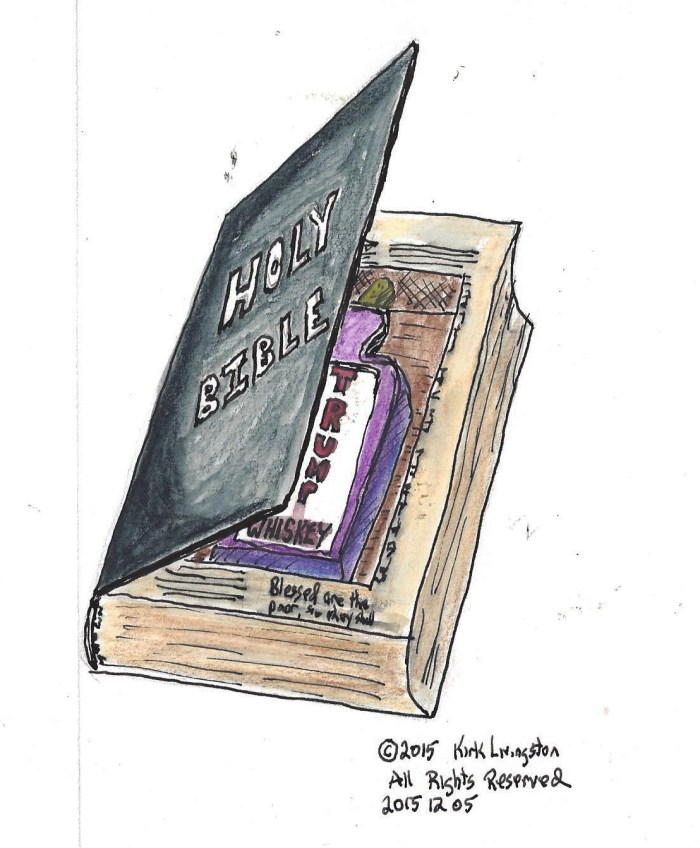 HOLY
BIBLE
TRUMP
WHISKEY
Blessed are the
poor, for they shall
©2015 Kirk Livingston
All Rights Reserved
2015 12 05